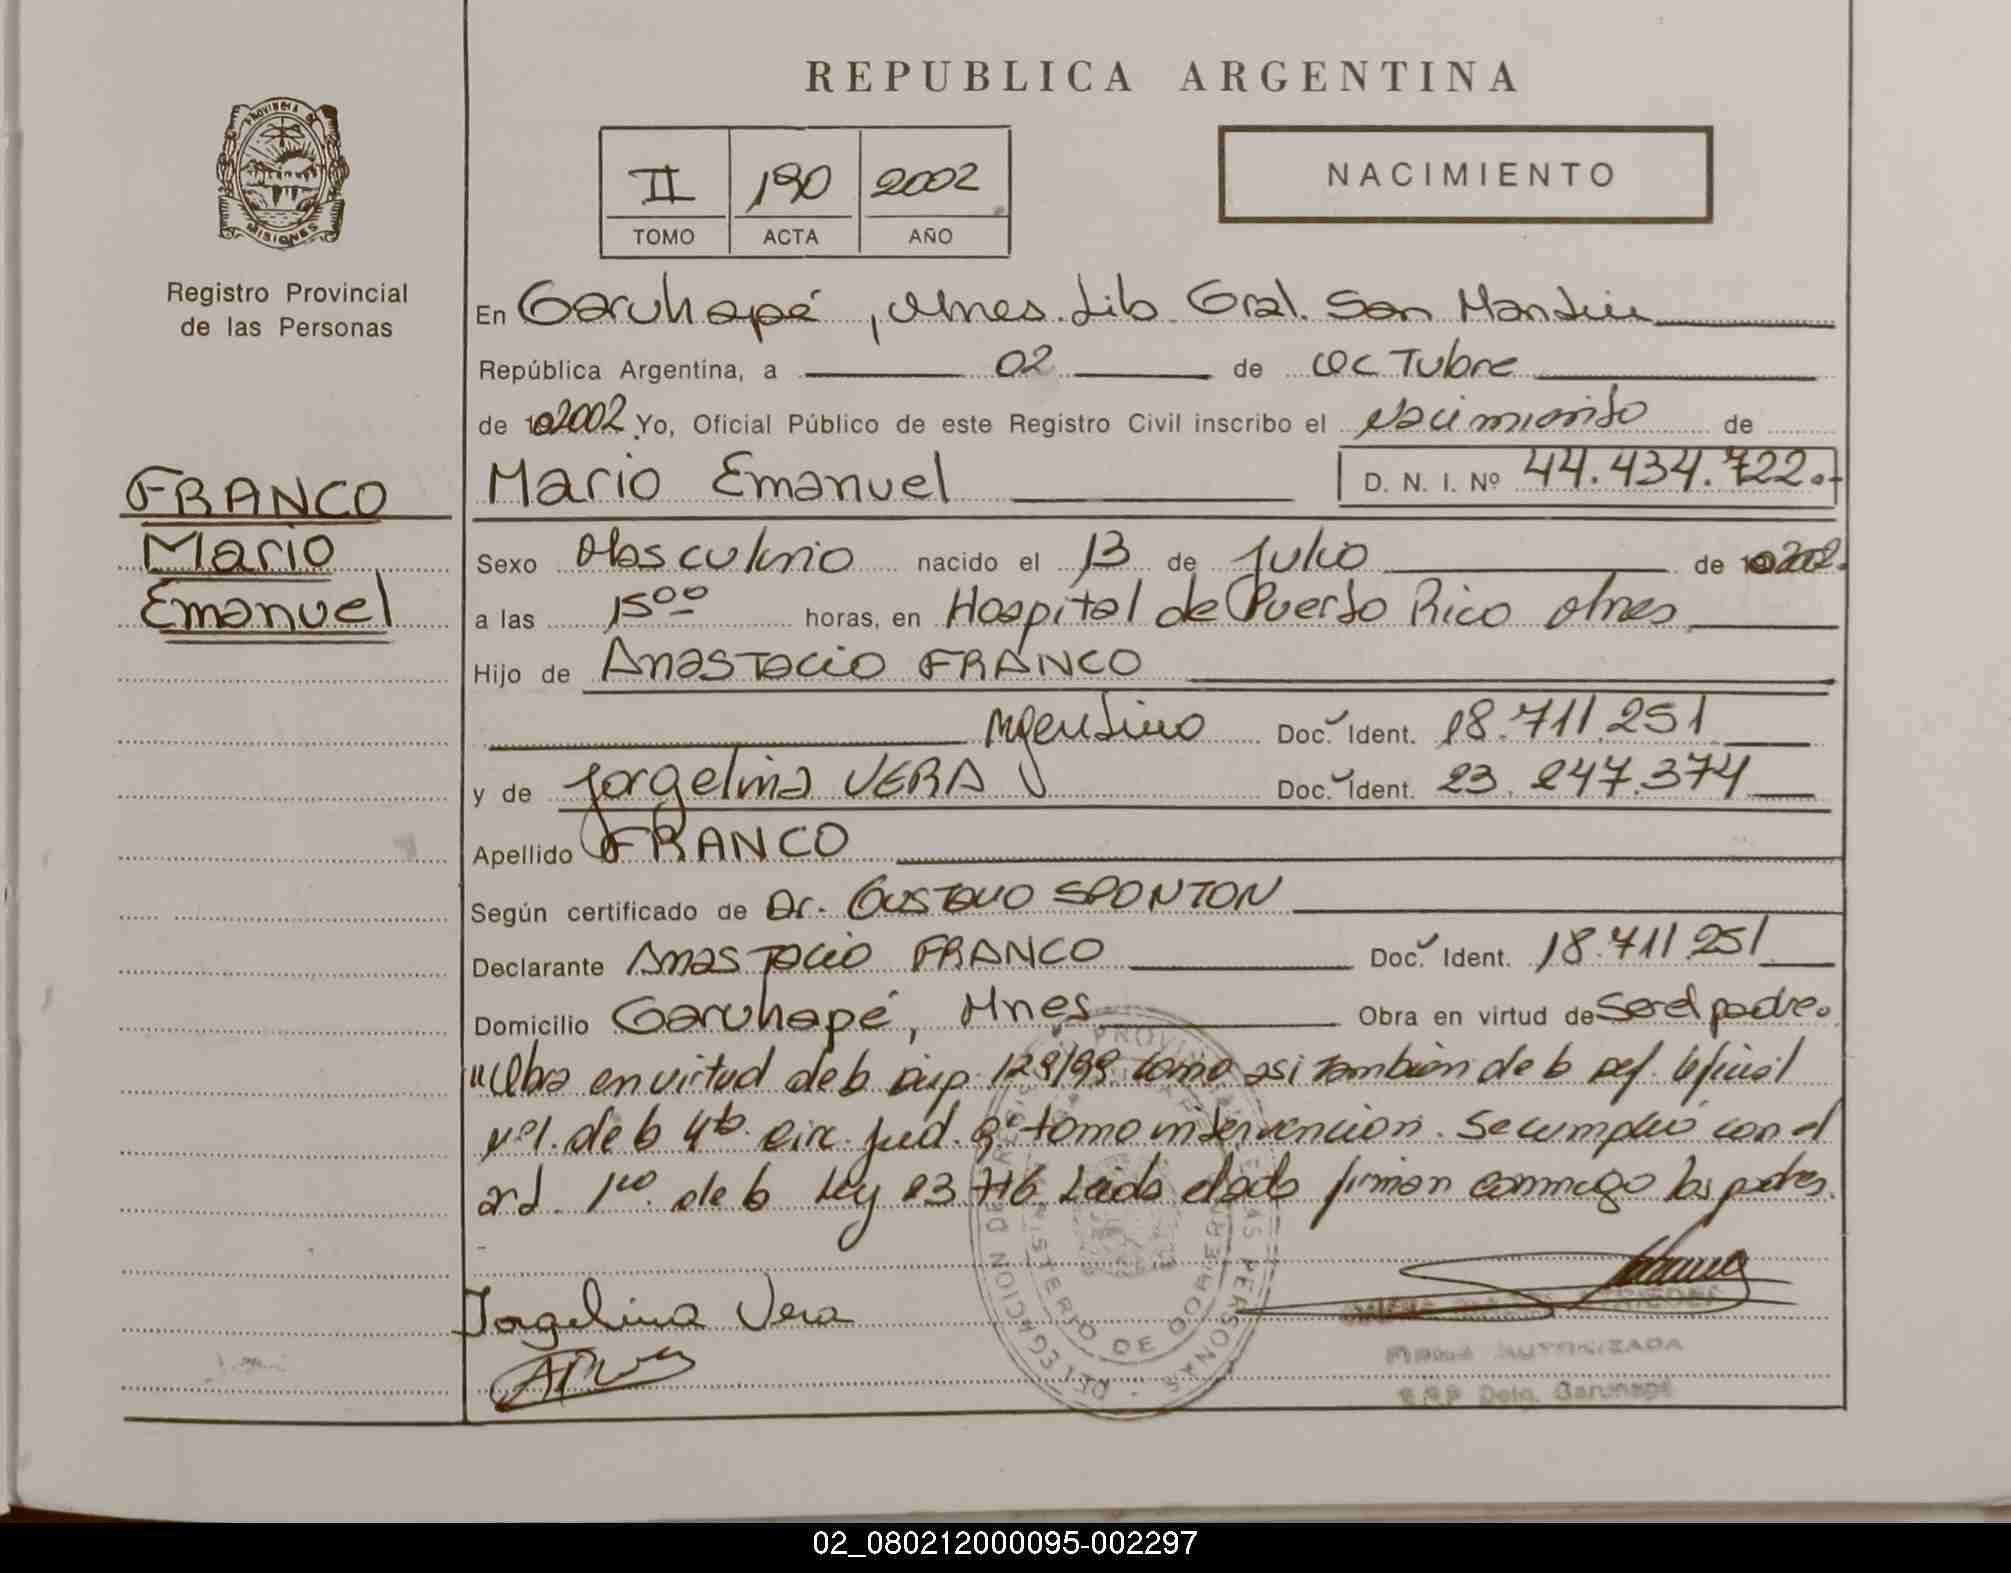 REPUBLICA ARGENTINA
PROVINCIA DE
MISIONES
Registro Provincial
de las Personas
II 190 2002
TOMO ACTA AÑO
NACIMIENTO
En Garuhapé, Mnes. Lib. Gral. San Martín
República Argentina, a 02 de Octubre
de 2002 Yo, Oficial Público de este Registro Civil inscribo el Nacimiento de
Mario Emanuel D. N. I. Nº 44.434.722.-
FRANCO
Mario
Emanuel
Sexo Masculino nacido el 13 de Julio de 2002.
a las 15⁰⁰ horas, en Hospital de Puerto Rico Mnes
Hijo de Anastacio FRANCO
Argentino Doc. Ident. 18.711.251
y de Jorgelina VERA Doc. Ident. 23.247.374
Apellido FRANCO
Según certificado de Dr. Gustavo SPONTON
Declarante Anastacio FRANCO Doc. Ident. 18.711.251
Domicilio Garuhapé, Mnes Obra en virtud de Ser el padre.
"Obra en virtud de la Disp. 129/99 como asi también de la Def. Oficial
Nº1. de la 4ta. Circ. Jud. q' tomo intervencion. Se cumplió con el
art. 1ro. de la Ley 23.776 Leida el acta firman conmigo los padres.
Jorgelina Vera
FIRMA AUTORIZADA
R.R.P Deleg. Garuhapé
02_080212000095-002297